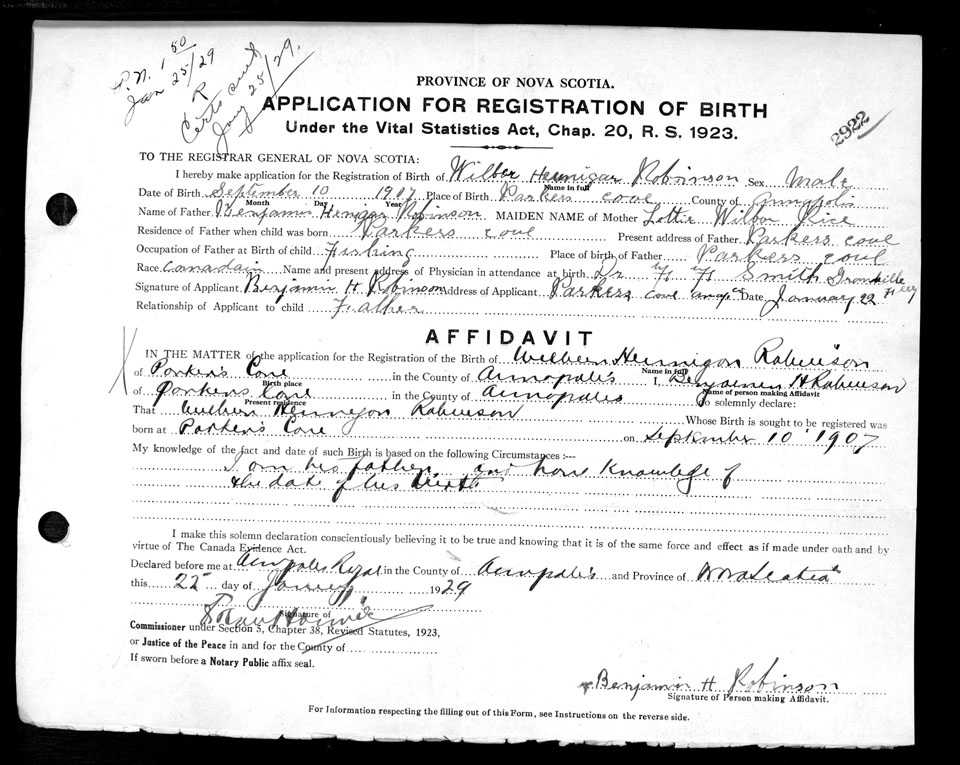 P.N. 1 50
Jan 25/29
R
Certs
Jany 25/29.
2922
PROVINCE OF NOVA SCOTIA.
APPLICATION FOR REGISTRATION OF BIRTH
Under the Vital Statistics Act, Chap. 20, R. S. 1923.
TO THE REGISTRAR GENERAL OF NOVA SCOTIA:
I hereby make application for the Registration of Birth of Wilbor Hennigar Robinson Sex Male
Name in full
Date of Birth September 10 1907 Place of Birth Parkers cove County of Annapolis
Month Day Year
Name of Father Benjamin Robinson MAIDEN NAME of Mother Lottie Wilbor Rice
Residence of Father when child was born Parkers cove Present address of Father Parkers cove
Occupation of Father at Birth of child Fishing Place of birth of Father Parkers cove
Race Canadain Name and present address of Physician in attendance at birth Dr Smith Granville Ferry
Signature of Applicant Benjamin H Robinson Address of Applicant Parkers Cove Date January 22
Relationship of Applicant to child Father
AFFIDAVIT
IN THE MATTER of the application for the Registration of the Birth of Hennigon Robinson
Name in full
of Parker's Cove in the County of Annapolis I, Benjamin H Robinson
Birth place Name of person making Affidavit
of Parkers Cove in the County of Annapolis do solemnly declare:
Present residence
That Robinson Whose Birth is sought to be registered was
born at Parker's Cove on September 10 1907
My knowledge of the fact and date of such Birth is based on the following Circumstances:—
I am his father and have knowlege of
the date of his birth
I make this solemn declaration conscientiously believing it to be true and knowing that it is of the same force and effect as if made under oath and by
virtue of The Canada Evidence Act.
Declared before me at Annapolis Royal in the County of Annapolis and Province of Nova Scotia
this 22 day of January 1929
Signature of
Commissioner under Section 5, Chapter 38, Revised Statutes, 1923,
or Justice of the Peace in and for the County of
If sworn before a Notary Public affix seal.
Benjamin H Robinson
Signature of Person making Affidavit.
For Information respecting the filling out of this Form, see Instructions on the reverse side.